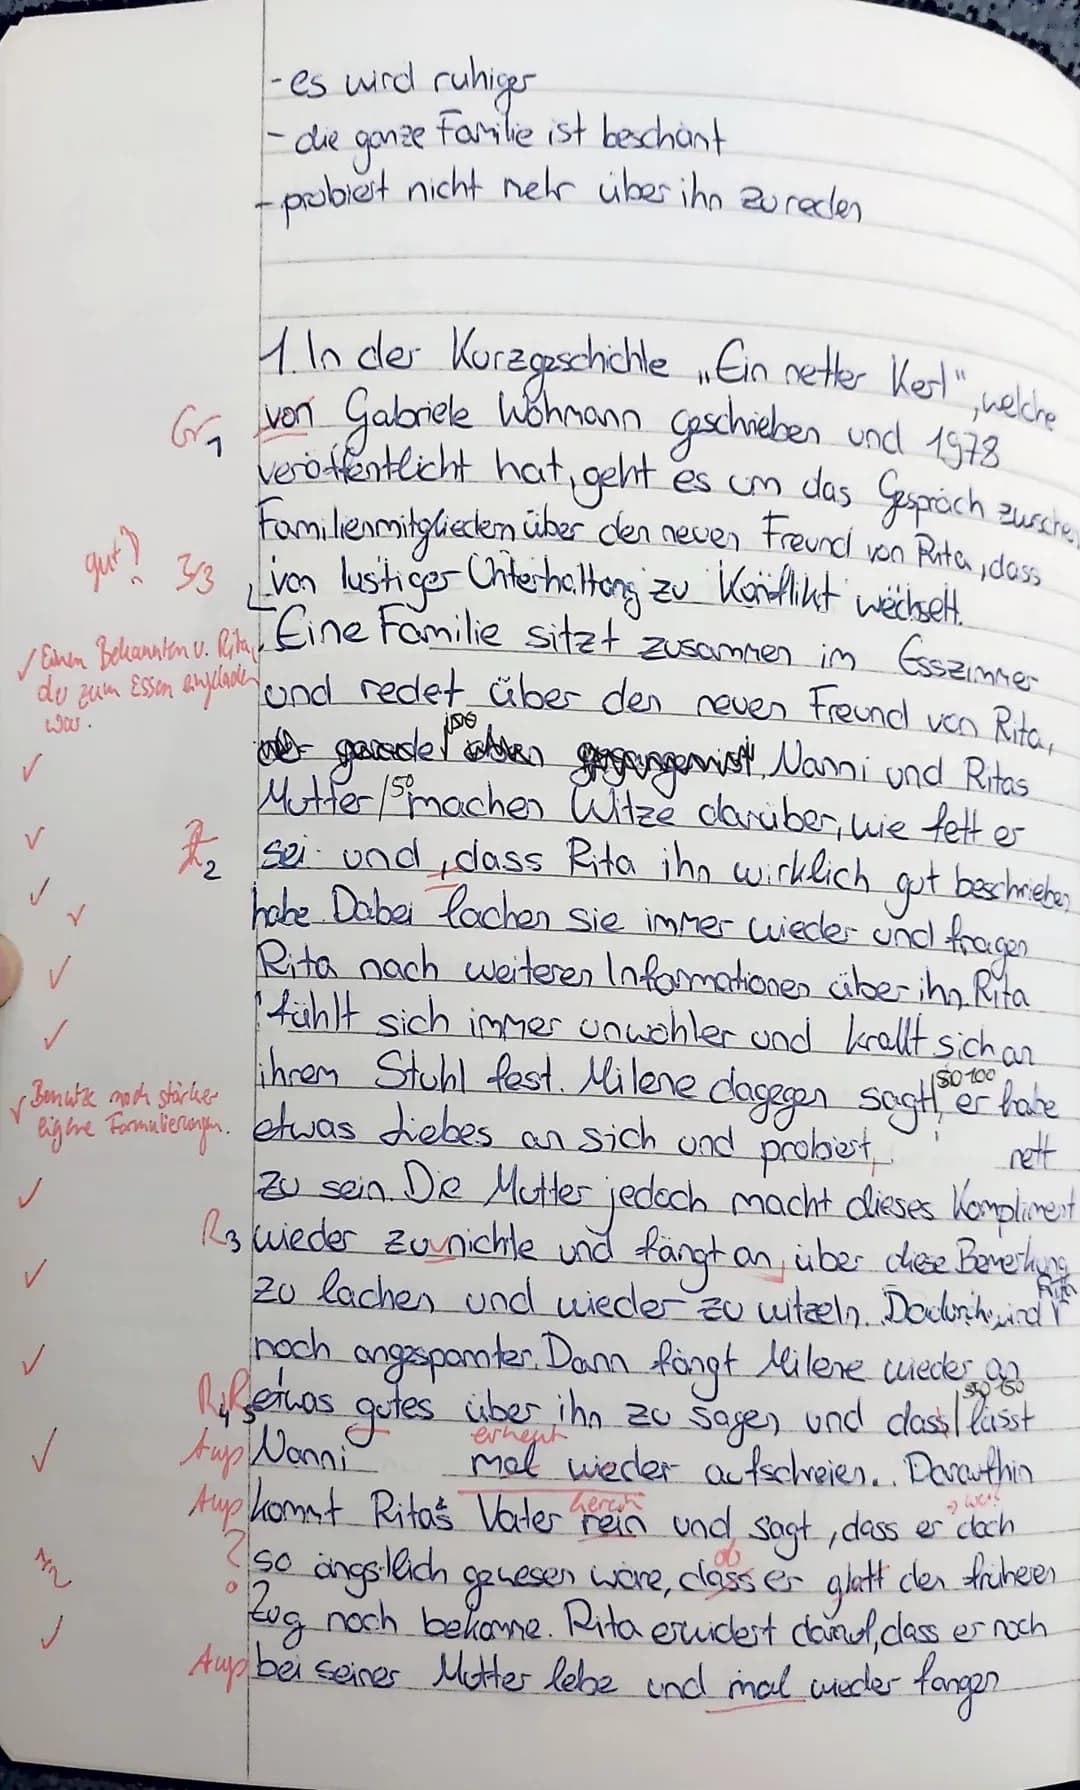 - es wird ruhiger
- die ganze Familie ist beschämt
- probiert nicht mehr über ihn zu reden
1. In der Kurzgeschichte „Ein netter Kerl", welche
Gr1 von Gabriele Wohmann geschrieben und 1978
veröffentlicht hat, geht es um das Gespräch zwischen
Familienmitgliedern über den neuen Freund von Rita, dass
gut? 3/3 von lustiger Unterhaltung zu Konflikt wechselt.
√ Einen Bekannten v. Rita, Eine Familie sitzt zusammen im Esszimmer
der zum Essen eingeladen und redet über den neuen Freund von Rita,
war.
gerade Nanni und Ritas
Mutter machen Witze darüber, wie fett er
2 sei und, dass Rita ihn wirklich gut beschrieben
habe. Dabei lachen sie immer wieder und fragen
Rita nach weiteren Informationen über ihn. Rita
fühlt sich immer unwohler und krallt sich an
ihrem Stuhl fest. Milene dagegen sagt, er habe
√ Benutze noch stärker eigene Formulierungen. etwas Liebes an sich und probiert, nett
zu sein. Die Mutter jedoch macht dieses Kompliment
R3 wieder zunichte und fängt an, über diese Bemerkung
zu lachen und wieder zu witzeln. Dadurch wird Rita
noch angespannter. Dann fängt Milene wieder an
R4 R5 etwas gutes über ihn zu sagen und dass lässt
Ausp Nanni erneut mal wieder aufschreien. Daraufhin
Ausp kommt Ritas Vater herein rein und sagt, dass er doch
? so ängstlich gewesen wäre, ob dass er glatt den früheren
Zug noch bekomme. Rita erwidert darauf, dass er noch
Ausp bei seiner Mutter lebe und mal wieder fangen